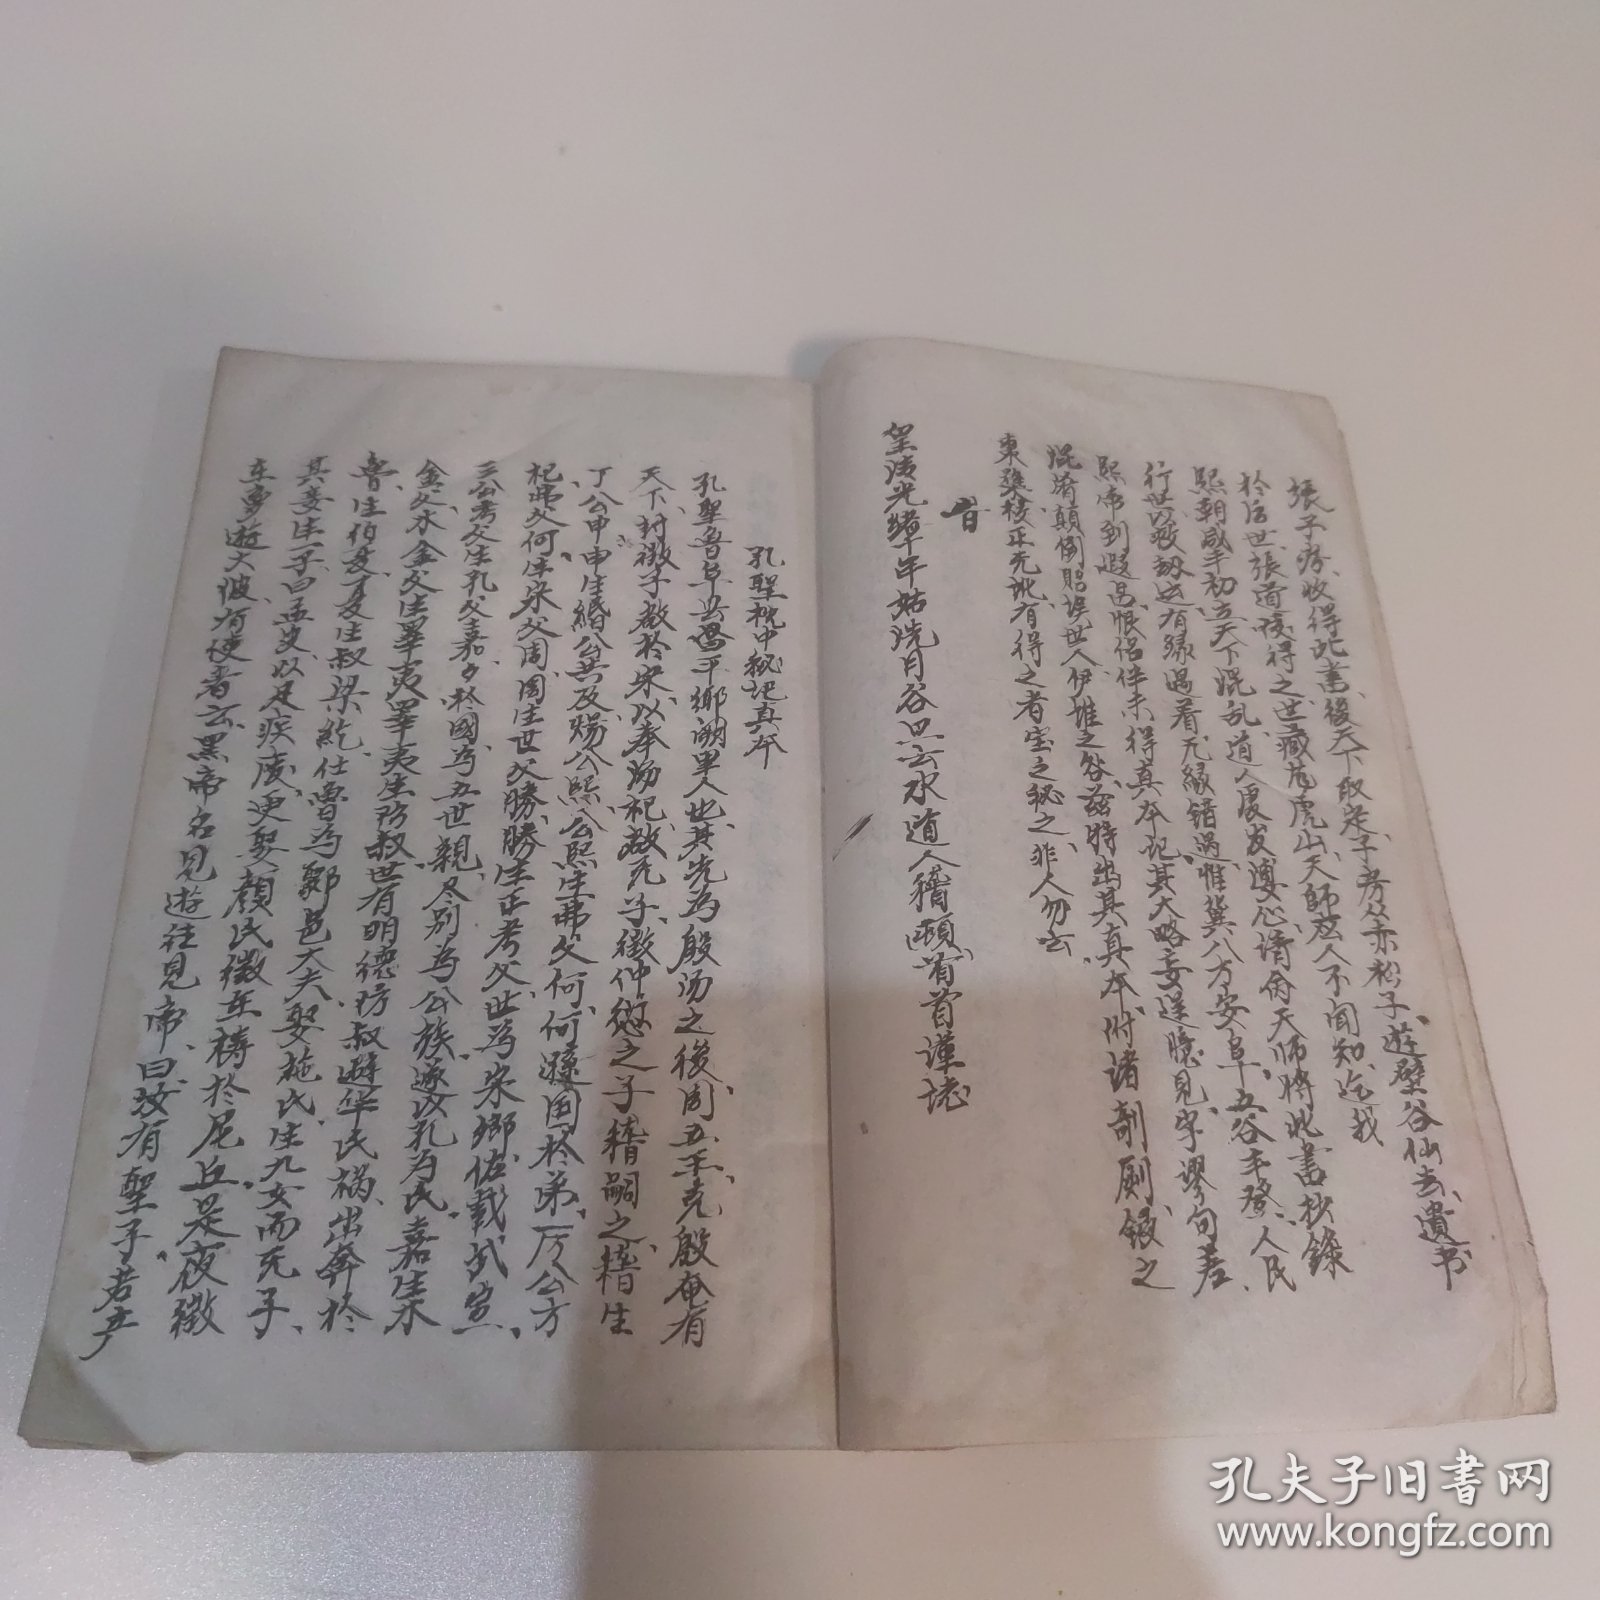 張子房收得此書後天下取定子房從赤松子遊壁谷仙去遺书
於后世張道陵得之世藏龙虎山天師府人不闻知迄我
熙朝咸丰初立天下混乱道人虔发婆心请俞天师将此書抄錄
行世以救劫运有缘遇着无緣錯過惟冀八方安阜五谷丰登人民
熙帝到遐邇恨侣伴未得真本記其大略妄逞臆見字謬句差
混淆顛倒貽误世人伊誰之咎兹特出其真本附诸剞劂锓之
東棗校正无訛有得之者宝之秘之非人勿云
旹
皇清光緒年姑洗月谷旦云水道人稽顿首首谨志
孔聖枕中秘記真本
孔聖魯阜县昌平鄉阙里人也其先為殷汤之後周武王克殷奄有
天下封微子啟於宋以奉汤祀啟无子微仲衍之子稽嗣之稽生
丁公申申生緡公共及煬公熙公熙生弗父何何遜国於弟厉公方
祀弗父何生宋父周周生世父勝勝生正考父世為宋鄉佐戴武宣
三公考父生孔父嘉夕於國為五世親尽别為公族遂以孔为氏嘉生木
金父木金父生睪夷睪夷生防叔世有明德防叔避华民禍出奔於
魯生伯夏夏生叔梁紇仕魯為鄹邑大夫娶施氏生九女而无子
其妾生一子曰孟皮以足疾废更娶顏氏徵在祷於尼丘是夜徵
在夢遊大陂有使者云黑帝召見遊往見帝曰汝有聖子若产
孔夫子旧書网
www.kongfz.com